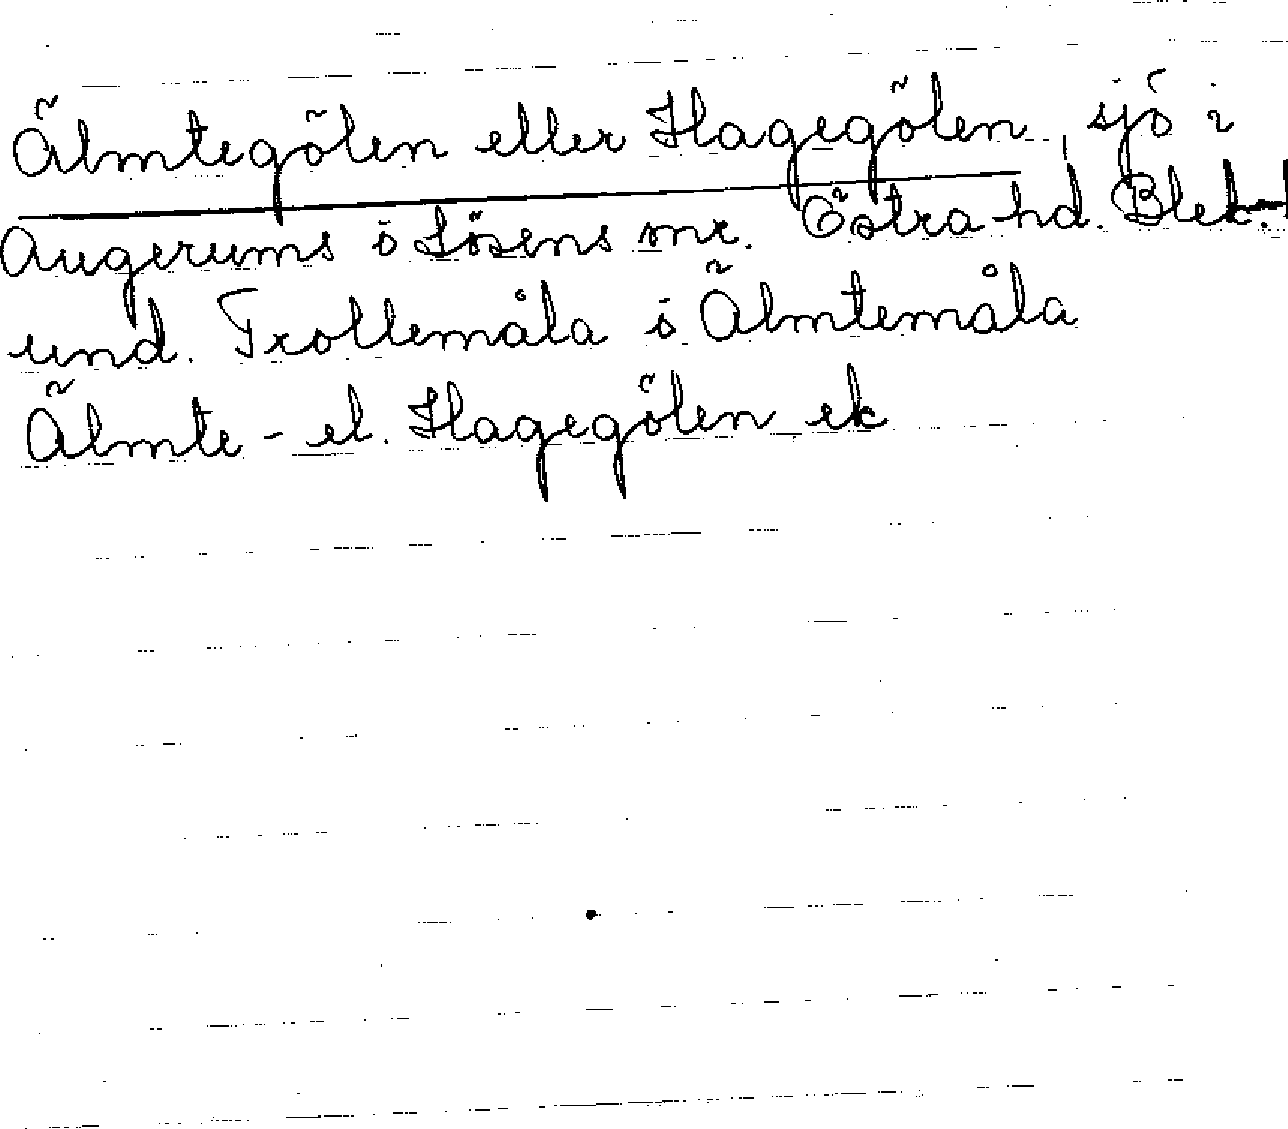 Älmtegölen eller Hagegölen, sjö i
Augerums o Lösens snr. Östra hd. Blek.
und. Trollemåla o Älmtemåla
Älmte- el. Hagegölen ek